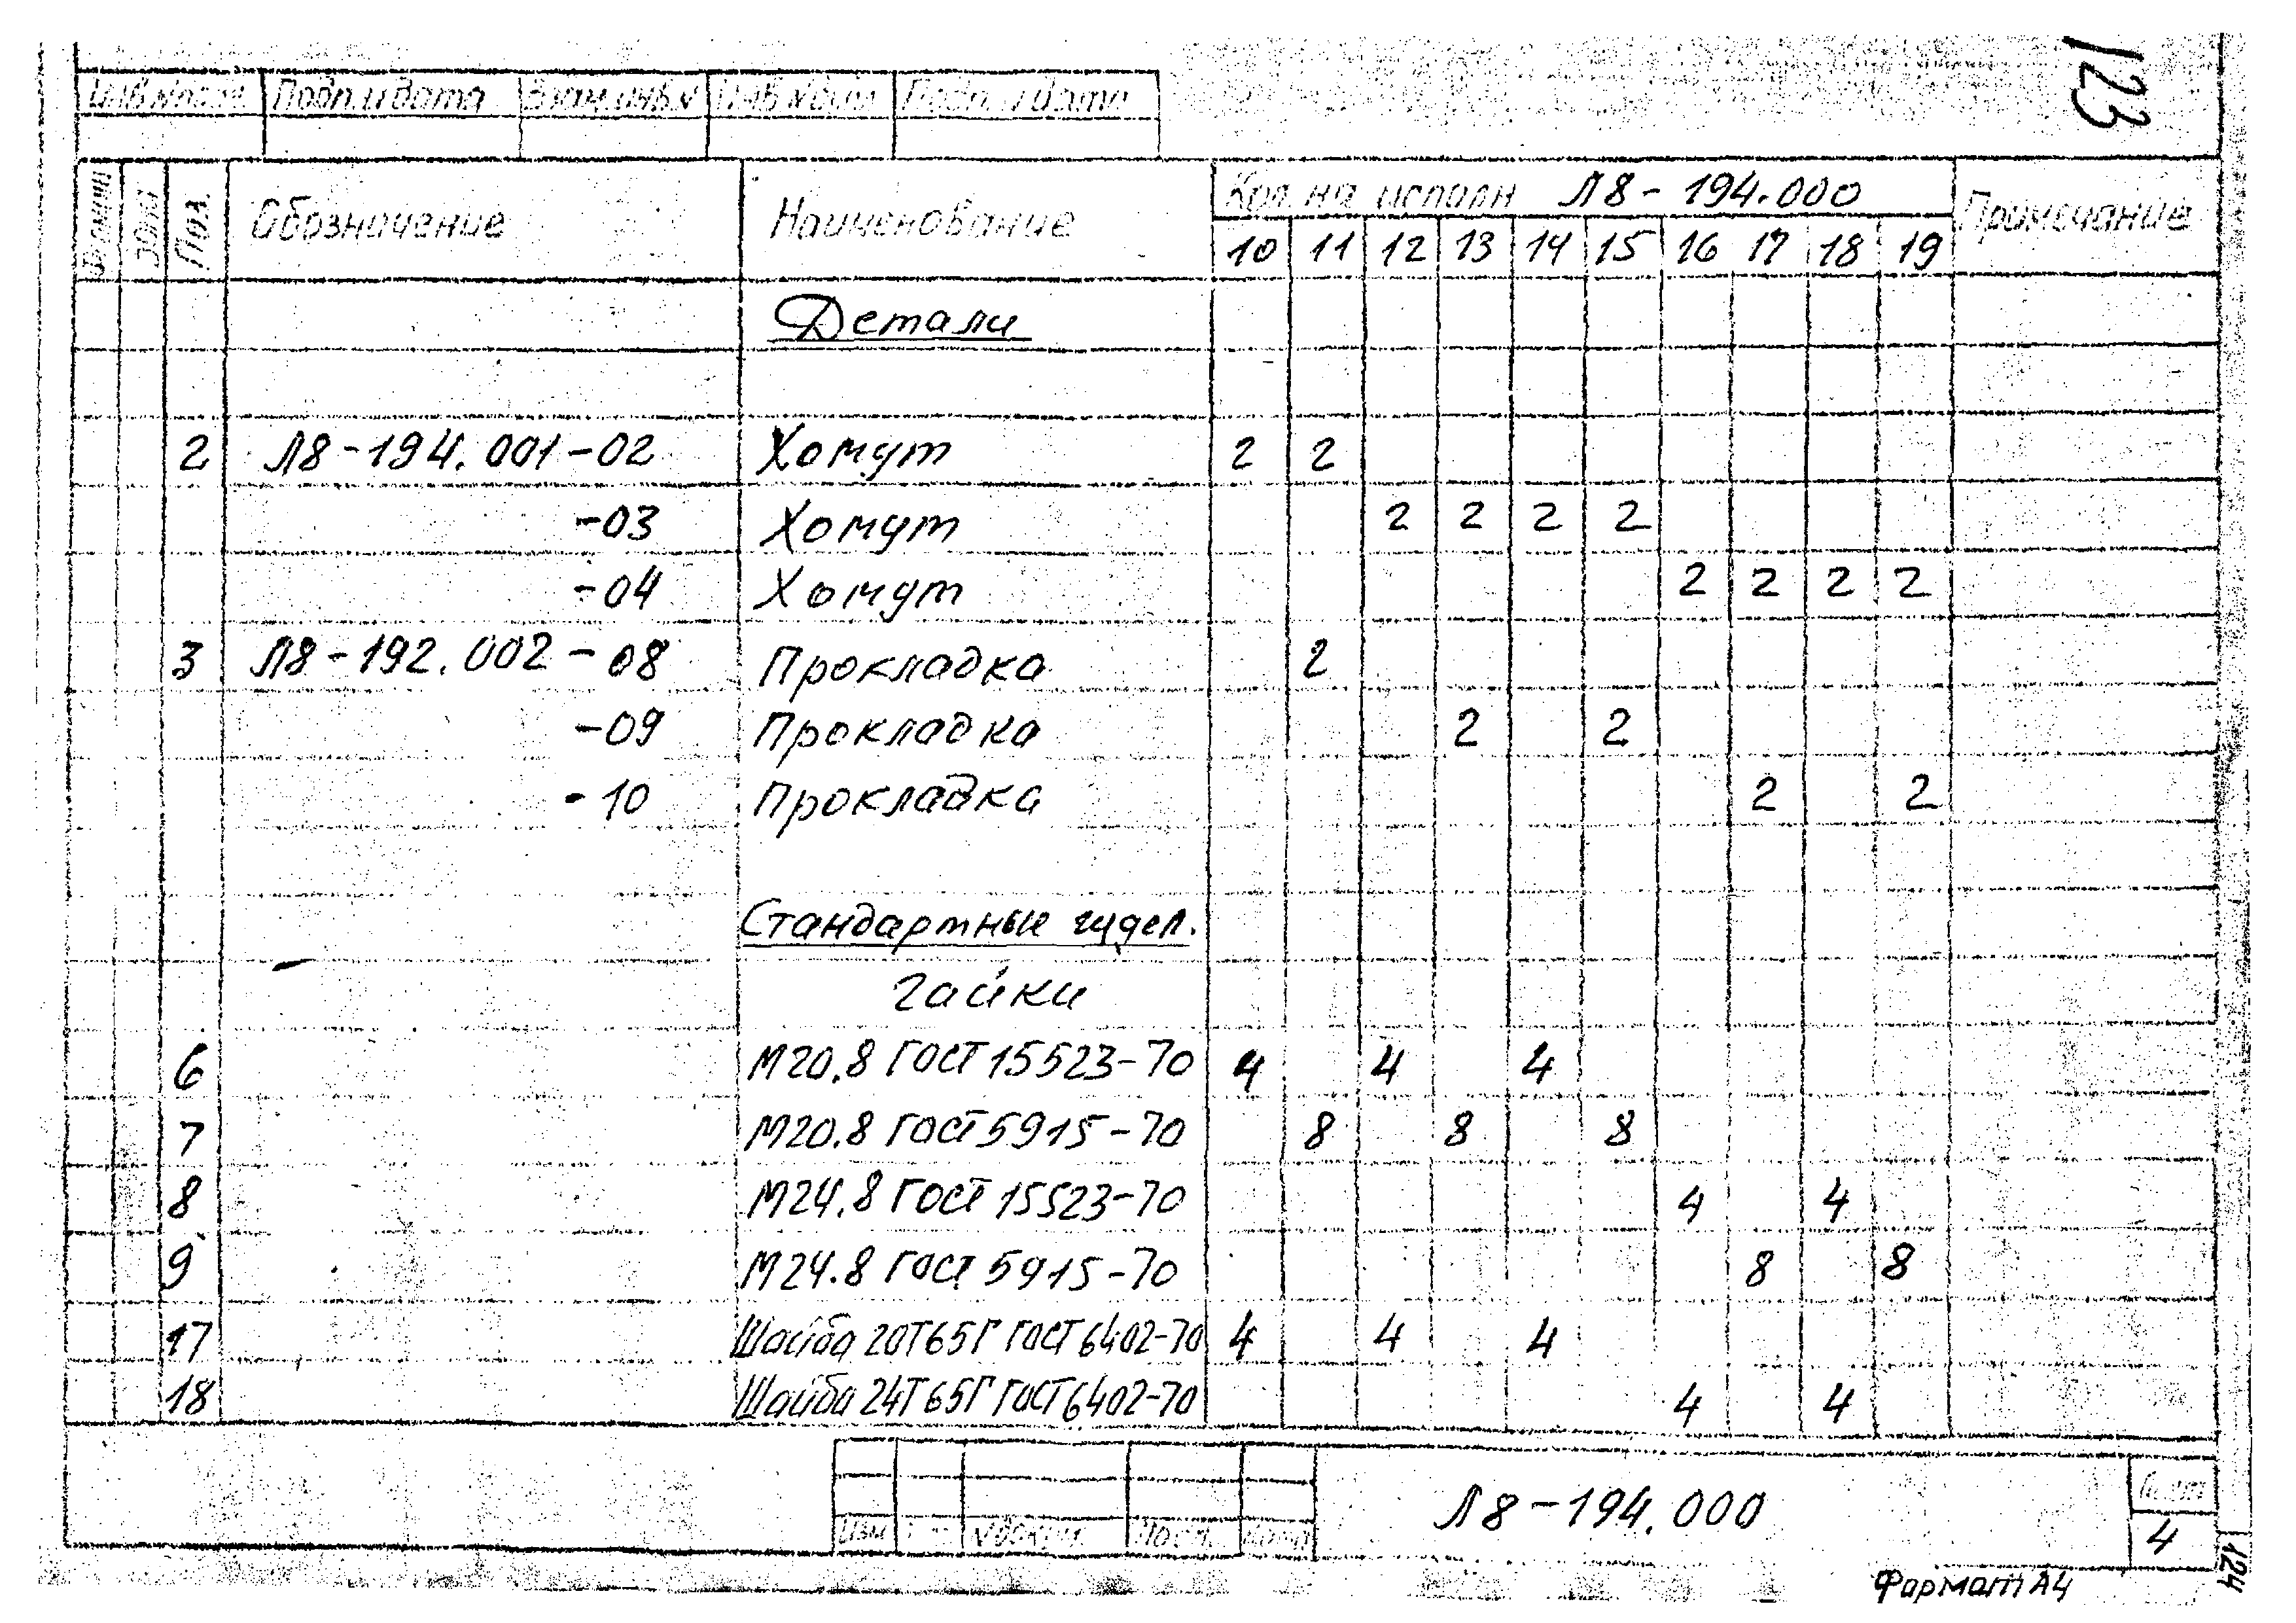 123
Инв.№подл. Подп. и дата Взам.инв.№ Инв.№дубл. Подп. и дата
Формат Зона Поз. Обозначение Наименование Кол. на исполн Л8-194.000 Примечание
10 11 12 13 14 15 16 17 18 19
Детали
2 Л8-194.001-02 Хомут 2 2
-03 Хомут 2 2 2 2
-04 Хомут 2 2 2 2
3 Л8-192.002-08 Прокладка 2
-09 Прокладка 2 2
-10 Прокладка 2 2
Стандартные издел.
Гайки
6 М20.8 ГОСТ 15523-70 4 4 4
7 М20.8 ГОСТ 5915-70 8 8 8
8 М24.8 ГОСТ 15523-70 4 4
9 М24.8 ГОСТ 5915-70 8 8
17 Шайба 20Т65Г ГОСТ 6402-70 4 4 4
18 Шайба 24Т65Г ГОСТ 6402-70 4 4
Л8-194.000
Лист
Изм №докум. Подп. Дата
4
124
Формат А4